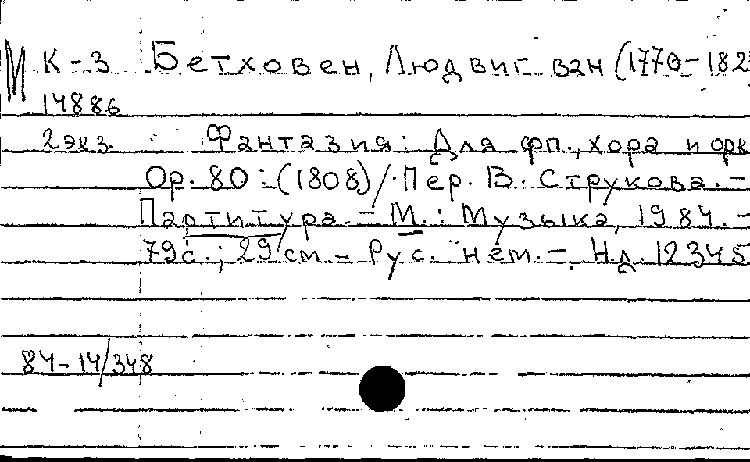 М К-3 Бетховен, Людвиг ван (1770-182
14886
2 экз. Фантазия: Для фп., хора и орк
Op. 80: (1808) / Пер. В. Струкова. -
Партитура. - М.: Музыка, 1984. -
79 с.; 29 см - Рус. нем. -. Н.д. 12345
84-14/348